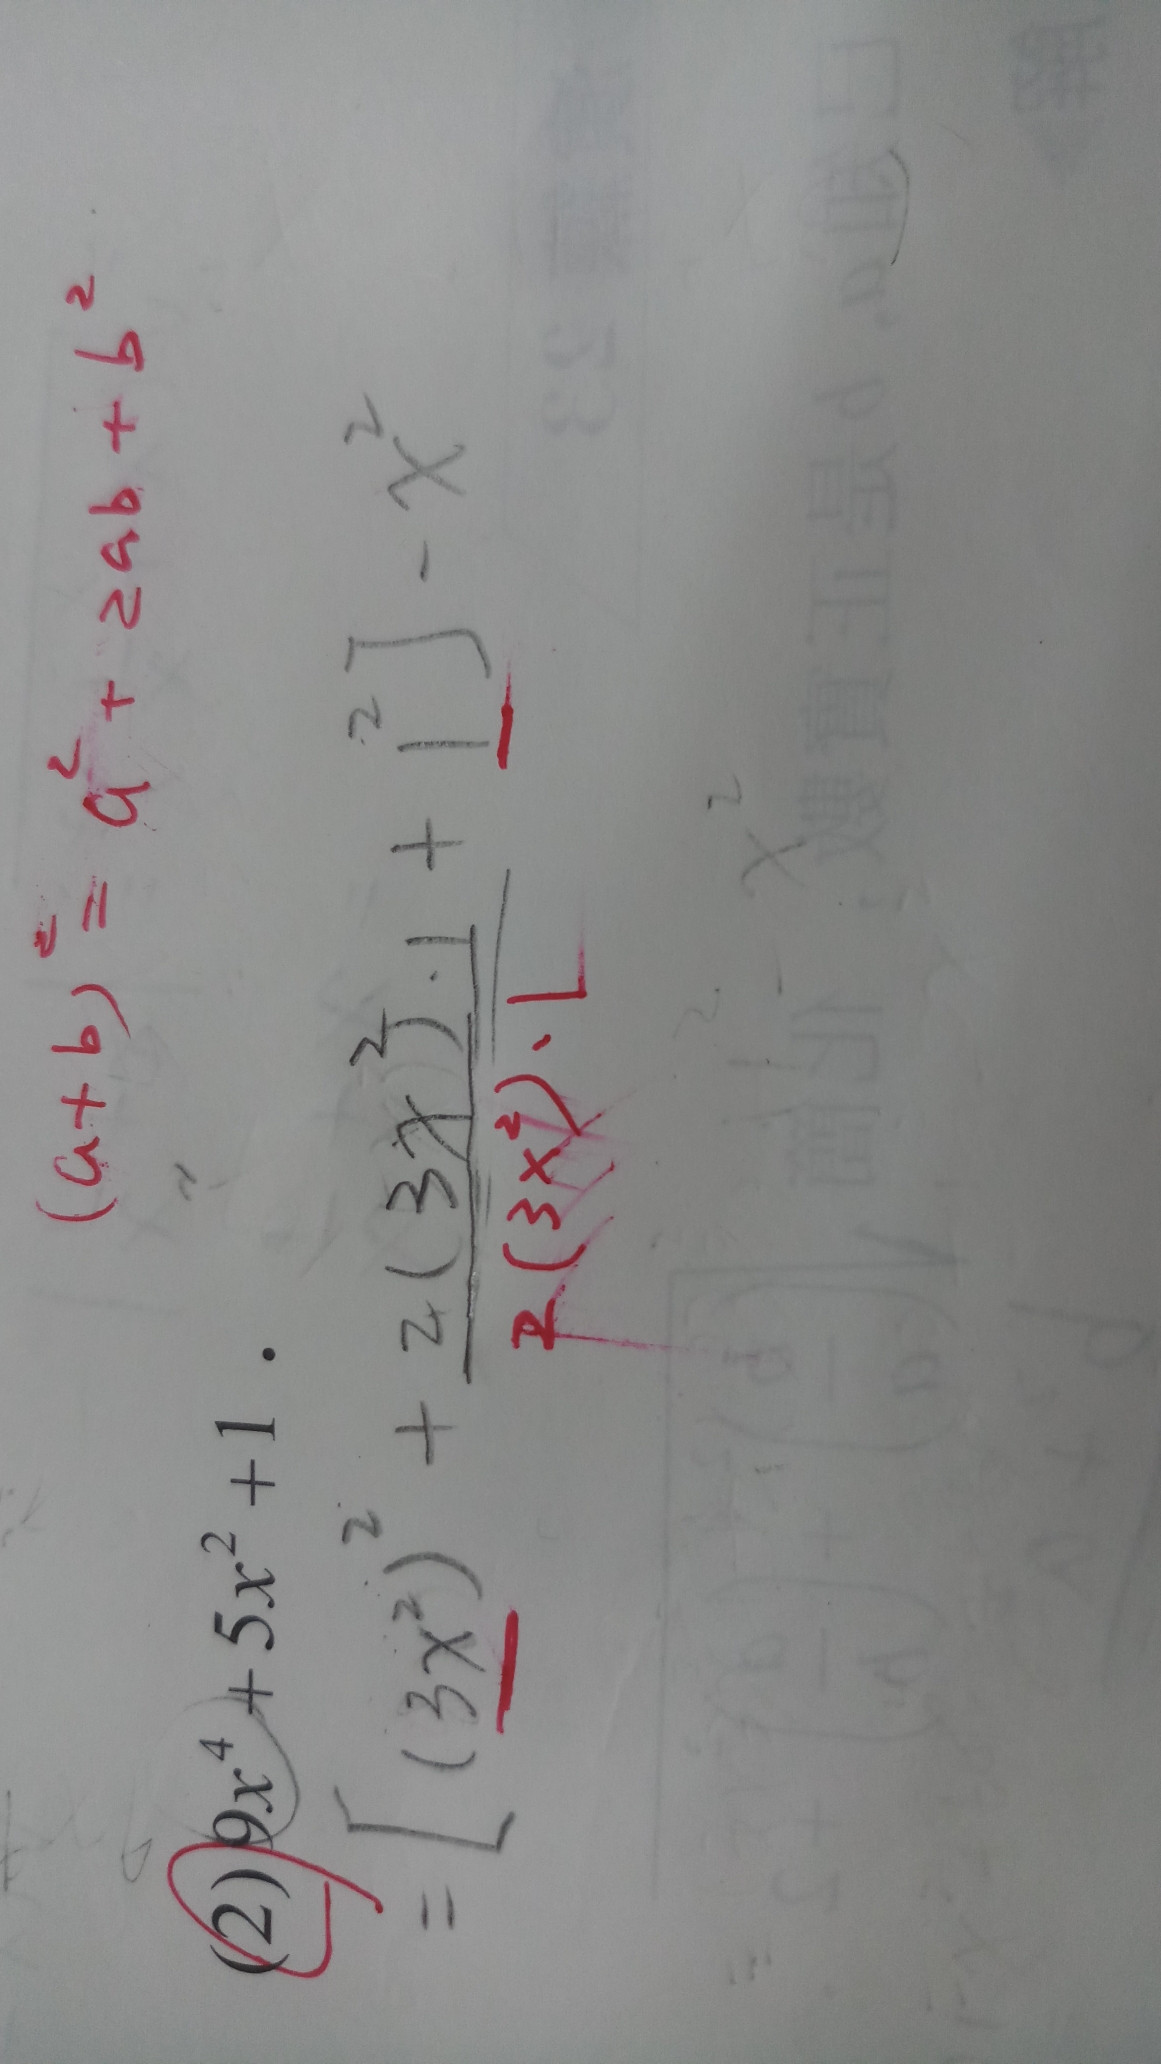 (a+b)² = a² + 2ab + b²
(2) 9x⁴ + 5x² + 1 .
= [(3x²)² + 2(3x²)·1 + 1²] - x²
2(3x²)·1
x²